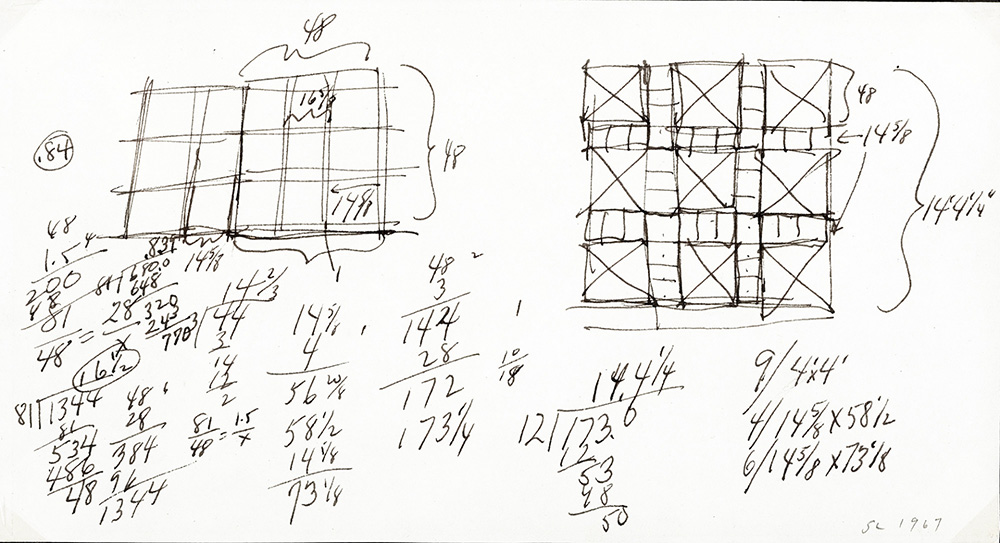 48
16 5/8
48
.84
14 5/8
14 5/8
48
14 5/8
14'4 1/4"
48
1.5
200
48
81
81
.839
680.0
648
320
243
770
81 = 28
48 x
16 1/2
81 1344
81
534
486
48
48
28
384
96
1344
14 2/3
3 44
3
14
12
2
81 = 1.5
48 x
14 5/8
4
56 20/8
58 1/2
14 5/8
73 1/8
48
3
144
28
172
173 1/4
10
18
14.4 1/4
12 173.0
12
53
48
50
9/ 4'x4'
4/ 14 5/8 x 58 1/2
6/ 14 5/8 x 73 1/8
SL 1967